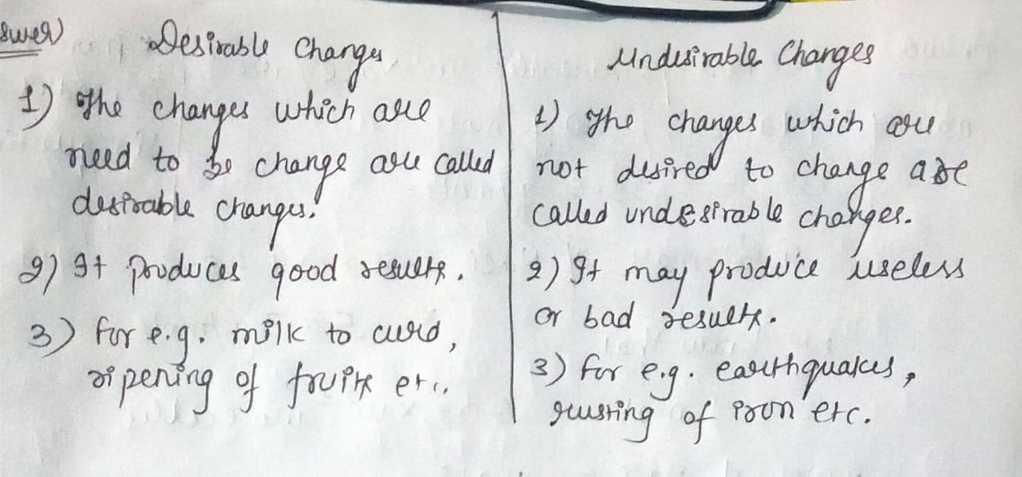 Desirable Changes
1) The changes which are
need to be change are called
desirable changes.
2) It produces good results.
3) for e.g. milk to curd,
ripening of fruits etc.
Undesirable Changes
1) The changes which are
not desired to change are
called undesirable changes.
2) It may produce useless
or bad results.
3) for e.g. earthquakes,
rusting of iron etc.